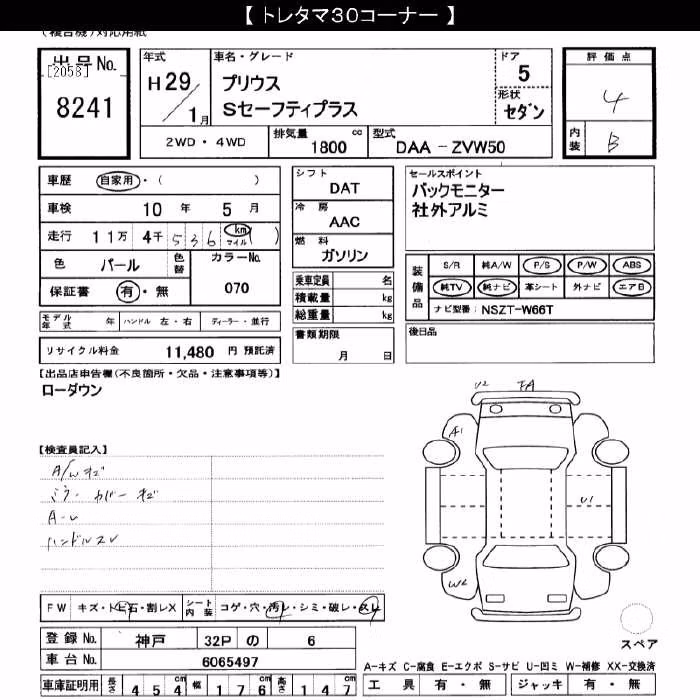 【 トレタマ30コーナー 】
(複合機)対応用紙
出品No.
[2058]
8241
年式
H 29 / 1月
車名・グレード
プリウス
Sセーフティプラス
ドア
5
形状
セダン
評価点
4
内装
B
2WD・4WD
排気量 1800 cc
型式 DAA-ZVW50
車歴 自家用・( )
車検 10年 5月
走行 11万 4千 5 3 6 km マイル ( )
色 パール 色替 カラーNo.
保証書 有・無 070
モデル年式 年 ハンドル 左・右 ディーラー・並行
リサイクル料金 11,480 円 預託済
シフト
DAT
冷房
AAC
燃料
ガソリン
乗車定員 名
積載量 kg
総重量 kg
書類期限
月 日
セールスポイント
バックモニター
社外アルミ
装備品
S/R 純A/W P/S P/W ABS
純TV 純ナビ 革シート 外ナビ エアB
ナビ型番: NSZT-W66T
後日品
【出品店申告欄(不良箇所・欠品・注意事項等)】
ローダウン
【検査員記入】
A/w キズ
ミラーカバーキズ
A-レ
ハンドルスレ
FW キズ・トビ石・割レX
シート内装 コゲ・穴・汚レ・シミ・破レ・スレ
登録No. 神戸 32P の 6
車台No. 6065497
車庫証明用 長さ 4 5 4 cm 幅 1 7 6 cm 高さ 1 4 7 cm
U2 FA
A1
U1
W2
スペア
A-キズ C-腐食 E-エクボ S-サビ U-凹ミ W-補修 XX-交換済
工具 有・無 ジャッキ 有・無